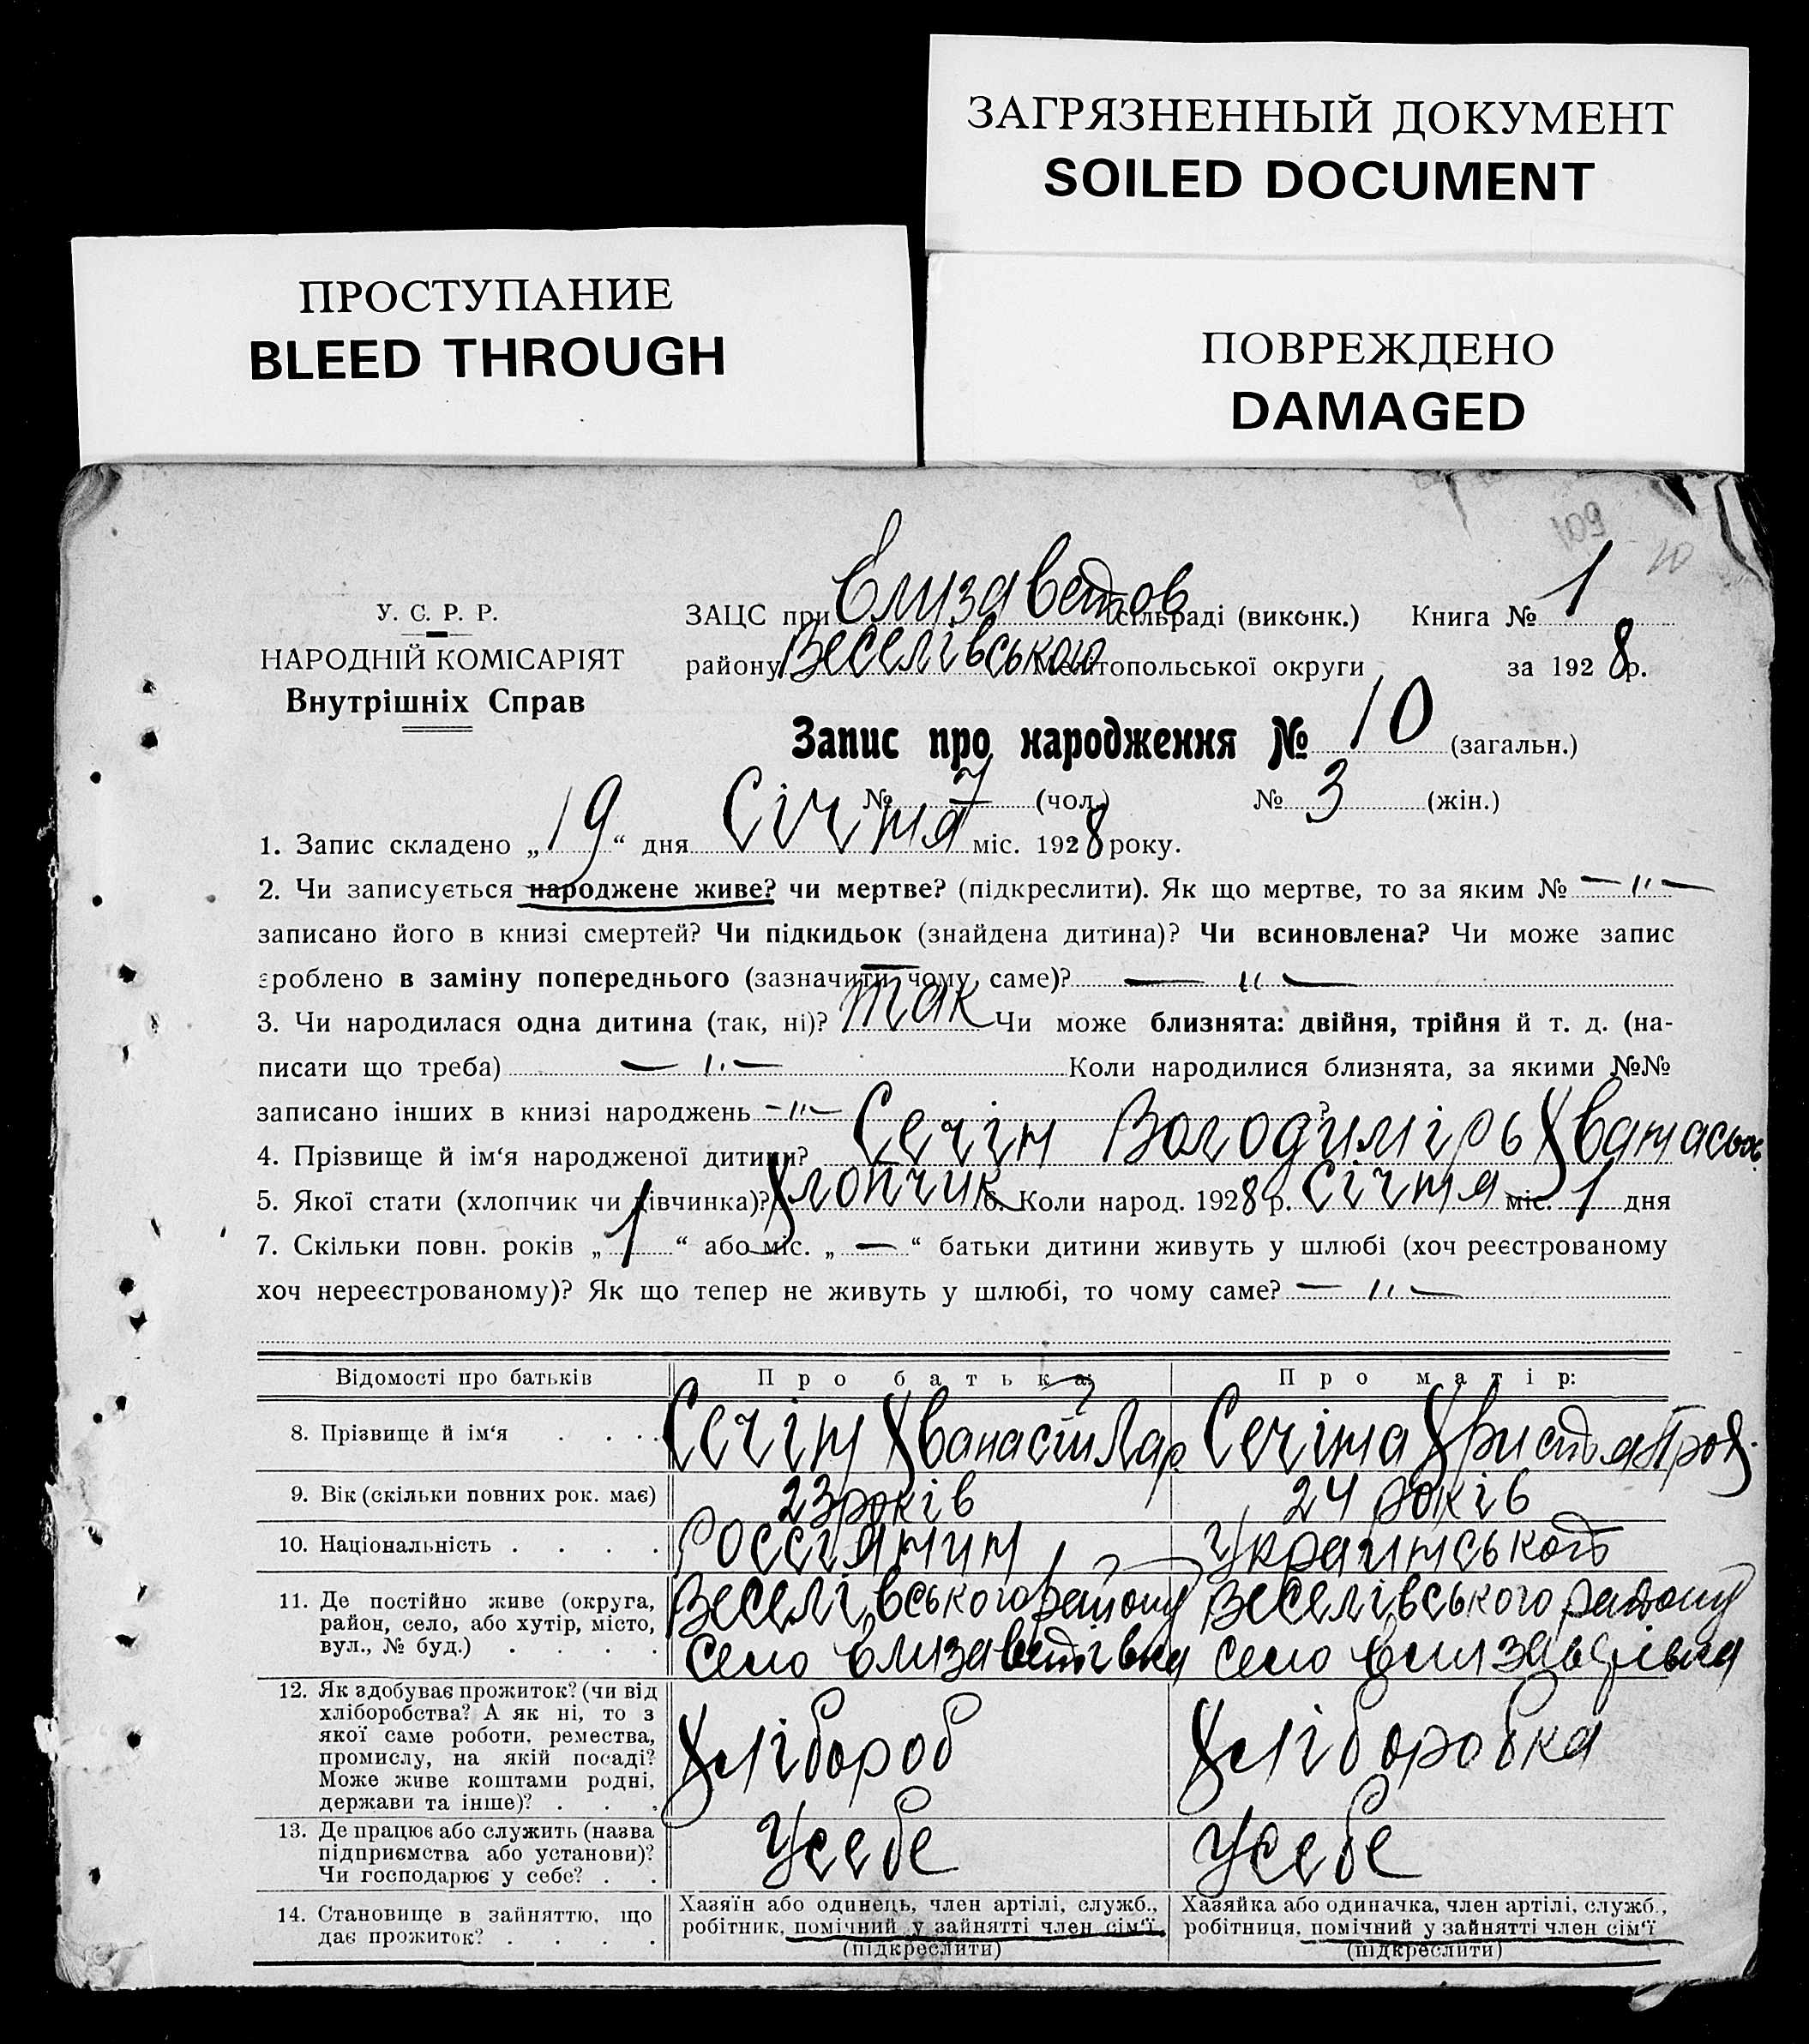 ЗАГРЯЗНЕННЫЙ ДОКУМЕНТ
SOILED DOCUMENT
ПРОСТУПАНИЕ
BLEED THROUGH
ПОВРЕЖДЕНО
DAMAGED
109
10
У. С. Р. Р.
НАРОДНІЙ КОМІСАРІЯТ
Внутрішніх Справ
ЗАЦС при Єлизаветов сільраді (виконк.) Книга № 1
району Веселівського Мелітопольської округи за 1928 р.
Запис про народження № 10 (загальн.)
№ 7 (чол.) № 3 (жін.)
1. Запис складено „19“ дня Січня міс. 1928 року.
2. Чи записується народжене живе? чи мертве? (підкреслити). Як що мертве, то за яким № —"—
записано його в книзі смертей? Чи підкидьок (знайдена дитина)? Чи всиновлена? Чи може запис
зроблено в заміну попереднього (зазначити чому саме)? — " —
3. Чи народилася одна дитина (так, ні)? так Чи може близнята: двійня, трійня й т. д. (на-
писати що треба) — " — Коли народилися близнята, за якими №№
записано інших в книзі народжень —"— ?
4. Прізвище й ім‘я народженої дитини? Сечін Володимірь
5. Якої стати (хлопчик чи дівчинка)? Хлопчик 6. Коли народ. 1928 р. Січня міс. 1 дня
7. Скільки повн. років „1“ або міс. „—“ батьки дитини живуть у шлюбі (хоч реєстрованому
хоч нереєстрованому)? Як що тепер не живуть у шлюбі, то чому саме? — " —
Відомості про батьків Про батька: Про матір:
8. Прізвище й ім‘я . . . . Сечін Хванасій Лар. Сечіна Христя
9. Вік (скільки повних рок. має) 23 років 24 років
10. Національність . . . . Россіянин Українського
11. Де постійно живе (округа, Веселівського району Веселівського району
район, село, або хутір, місто, село Єлизаветівка село
вул., № буд.) . . . .
12. Як здобуває прожиток? (чи від
хліборобства? А як ні, то з
якої саме роботи, ремества, Хлібороб Хліборобка
промислу, на якій посаді?
Може живе коштами родні,
держави та інше)? . . .
13. Де працює або служить (назва
підприємства або установи)? Усебе Усебе
Чи господарює у себе? . .
14. Становище в зайняттю, що Хазяїн або одинець, член артілі, служб., Хазяйка або одиначка, член артілі, служб.,
дає прожиток? . . . . робітник, помічний у зайнятті член сім‘ї робітниця, помічний у зайнятті член сім‘ї
(підкреслити) (підкреслити)